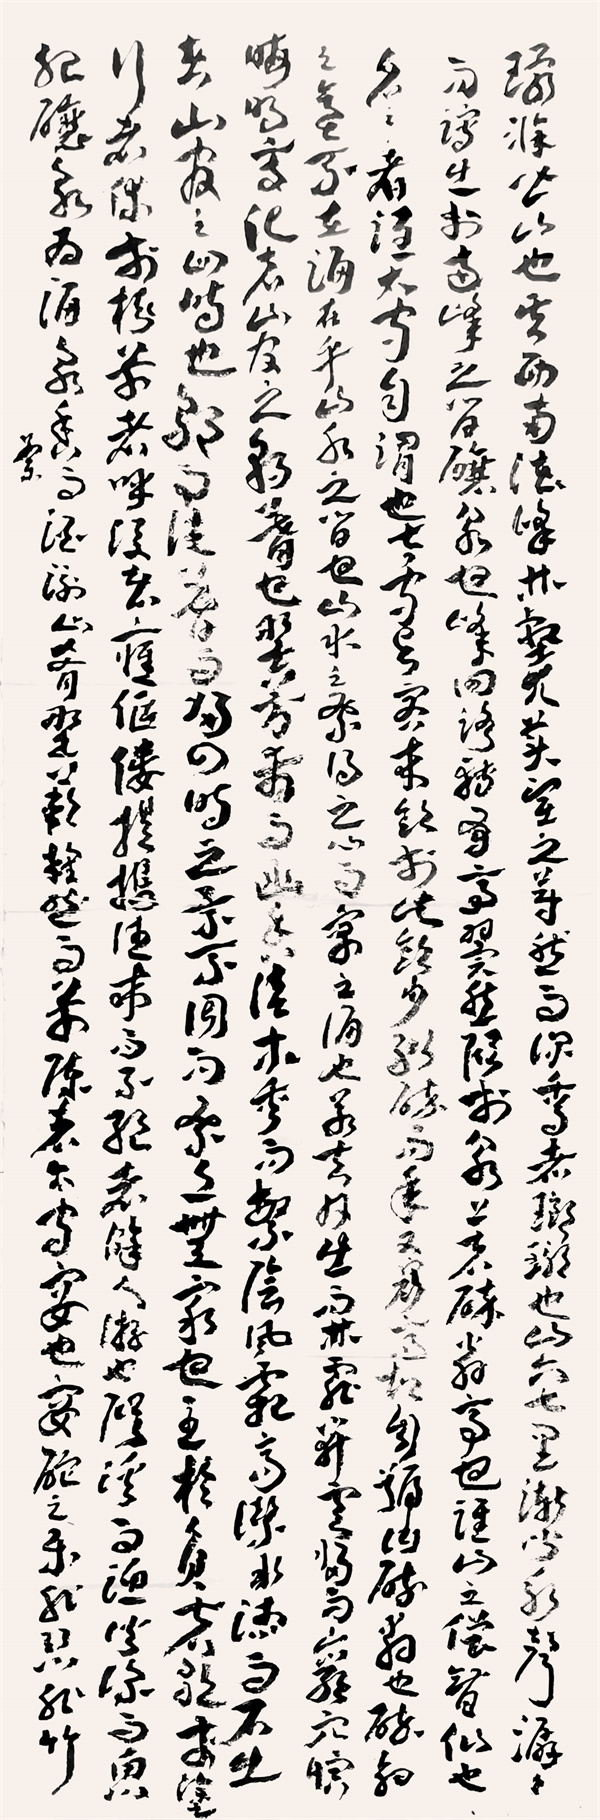 環滁皆山也其西南諸峰林壑尤美望之蔚然而深秀者瑯琊也山六七里漸聞水聲潺々
而瀉出於兩峰之間釀泉也峰回路轉有亭翼然臨於泉上者醉翁亭也誰山之僧智仙也
名之者誰太守自謂也太守與客來飲於此飲少輒醉而年又最高故自號曰醉翁也醉翁
之意不在酒在乎山水之間也山水之樂得之心而寓之酒也若夫日出而林霏開雲歸而巖穴暝
晦明變化者山間之朝暮也野芳發而幽香佳木秀而繁陰風霜高潔水落而石出
者山間之四時也朝而往暮而歸四時之景不同而樂亦無窮也至於負者歌於塗
行者休於樹前者呼後者應傴僂提攜往來而不絕者滁人遊也臨溪而漁溪深而魚
肥釀泉為酒泉香而酒洌山肴野蔌雜然而前陳者太守宴也宴酣之樂非絲非竹